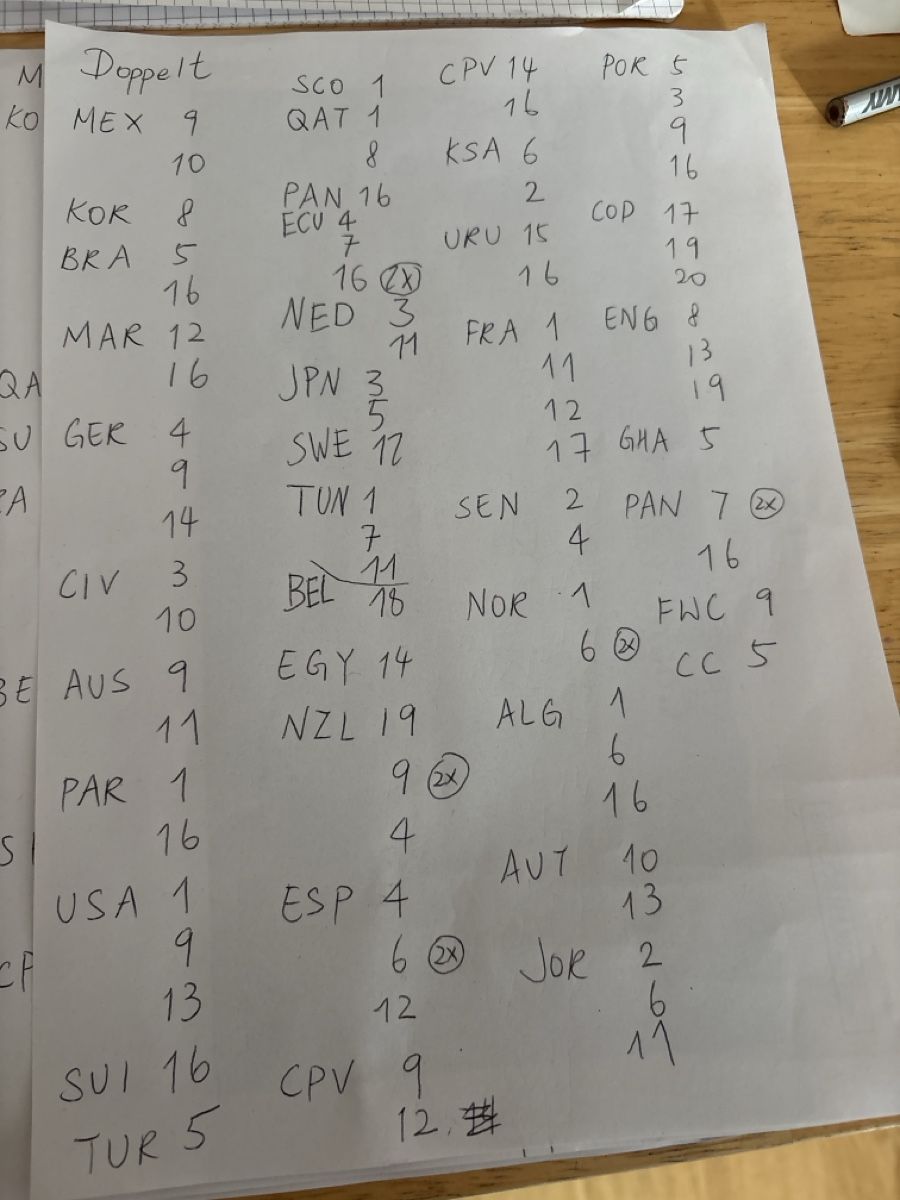 Doppelt
MEX 9
10
KOR 8
BRA 5
16
MAR 12
16
GER 4
9
14
CIV 3
10
AUS 9
11
PAR 1
16
USA 1
9
13
SUI 16
TUR 5
SCO 1
QAT 1
8
PAN 16
ECU 4
7
16 2x
NED 3
11
JPN 3
5
SWE 12
TUN 1
7
11
BEL 18
EGY 14
NZL 19
9 2x
4
ESP 4
6 2x
12
CPV 9
12
CPV 14
16
KSA 6
2
URU 15
16
FRA 1
11
12
17
SEN 2
4
NOR 1
6 2x
ALG 1
6
16
AUT 10
13
JOR 2
6
11
POR 5
3
9
16
COD 17
19
20
ENG 8
13
19
GHA 5
PAN 7 2x
16
FWC 9
CC 5
M
KO
QA
SU
BE
CP